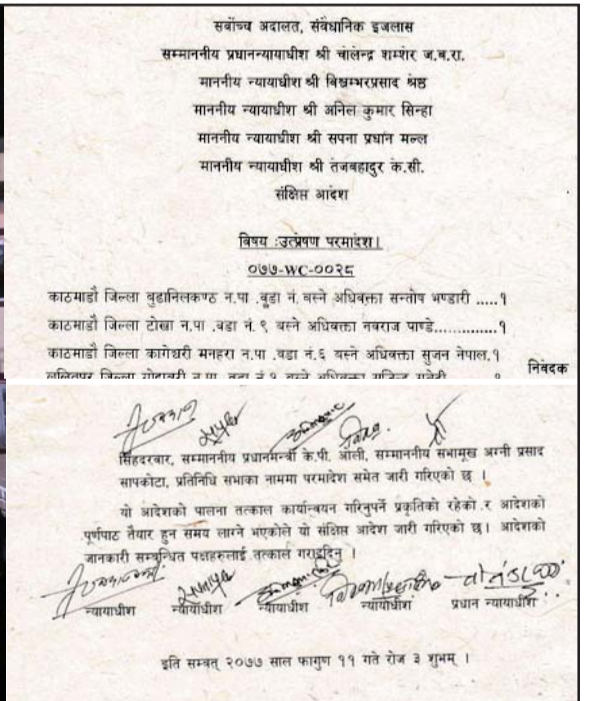 सर्वोच्च अदालत, संवैधानिक इजलास
सम्माननीय प्रधानन्यायाधीश श्री चोलेन्द्र शम्शेर ज.ब.रा.
माननीय न्यायाधीश श्री विश्वम्भरप्रसाद श्रेष्ठ
माननीय न्यायाधीश श्री अनिल कुमार सिन्हा
माननीय न्यायाधीश श्री सपना प्रधान मल्ल
माननीय न्यायाधीश श्री तेजबहादुर के.सी.
संक्षिप्त आदेश
विषय :उत्प्रेषण परमादेश।
०७७-WC-००२८
काठमाडौं जिल्ला बुढानिलकण्ठ न.पा .वडा नं. बस्ने अधिवक्ता सन्तोष भण्डारी .....१
काठमाडौं जिल्ला टोखा न.पा .वडा नं. ९ बस्ने अधिवक्ता नवराज पाण्डे..............१
काठमाडौं जिल्ला कागेश्वरी मनहरा न.पा .वडा नं.६ बस्ने अधिवक्ता सुजन नेपाल.१
निवेदक
ललितपुर जिल्ला न.पा. वडा नं बस्ने अधिवक्ता
सिंहदरबार, सम्माननीय प्रधानमन्त्री के.पी. ओली, सम्माननीय सभामुख अग्नी प्रसाद
सापकोटा, प्रतिनिधि सभाका नाममा परमादेश समेत जारी गरिएको छ ।
यो आदेशको पालना तत्काल कार्यान्वयन गरिनुपर्ने प्रकृतिको रहेको र आदेशको
पूर्णपाठ तैयार हुन समय लाग्ने भएकोले यो संक्षिप्त आदेश जारी गरिएको छ। आदेशको
जानकारी सम्बन्धित पक्षहरुलाई तत्काल गराइदिनु ।
न्यायाधीश न्यायाधीश न्यायाधीश न्यायाधीश प्रधान न्यायाधीश
इति सम्वत् २०७७ साल फागुण ११ गते रोज ३ शुभम् ।